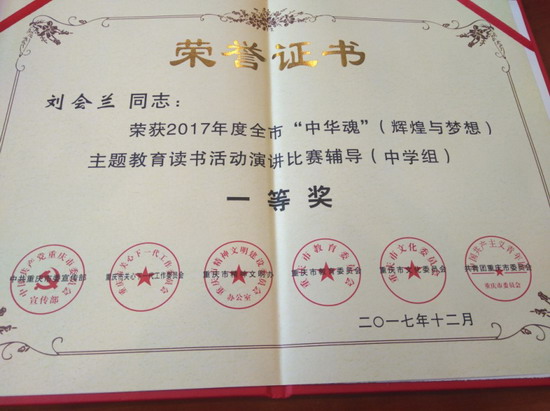 荣誉证书
刘会兰 同志：
荣获2017年度全市“中华魂”（辉煌与梦想）
主题教育读书活动演讲比赛辅导（中学组）
一等奖
中共重庆市委宣传部 重庆市关心下一代工作委员会 重庆市精神文明办 重庆市教育委员会 重庆市文化委员会 共青团重庆市委员会
中国共产党重庆市委员会
宣传部
重庆市教育委员会
重庆市文化委员会
重庆市委员会
二〇一七年十二月